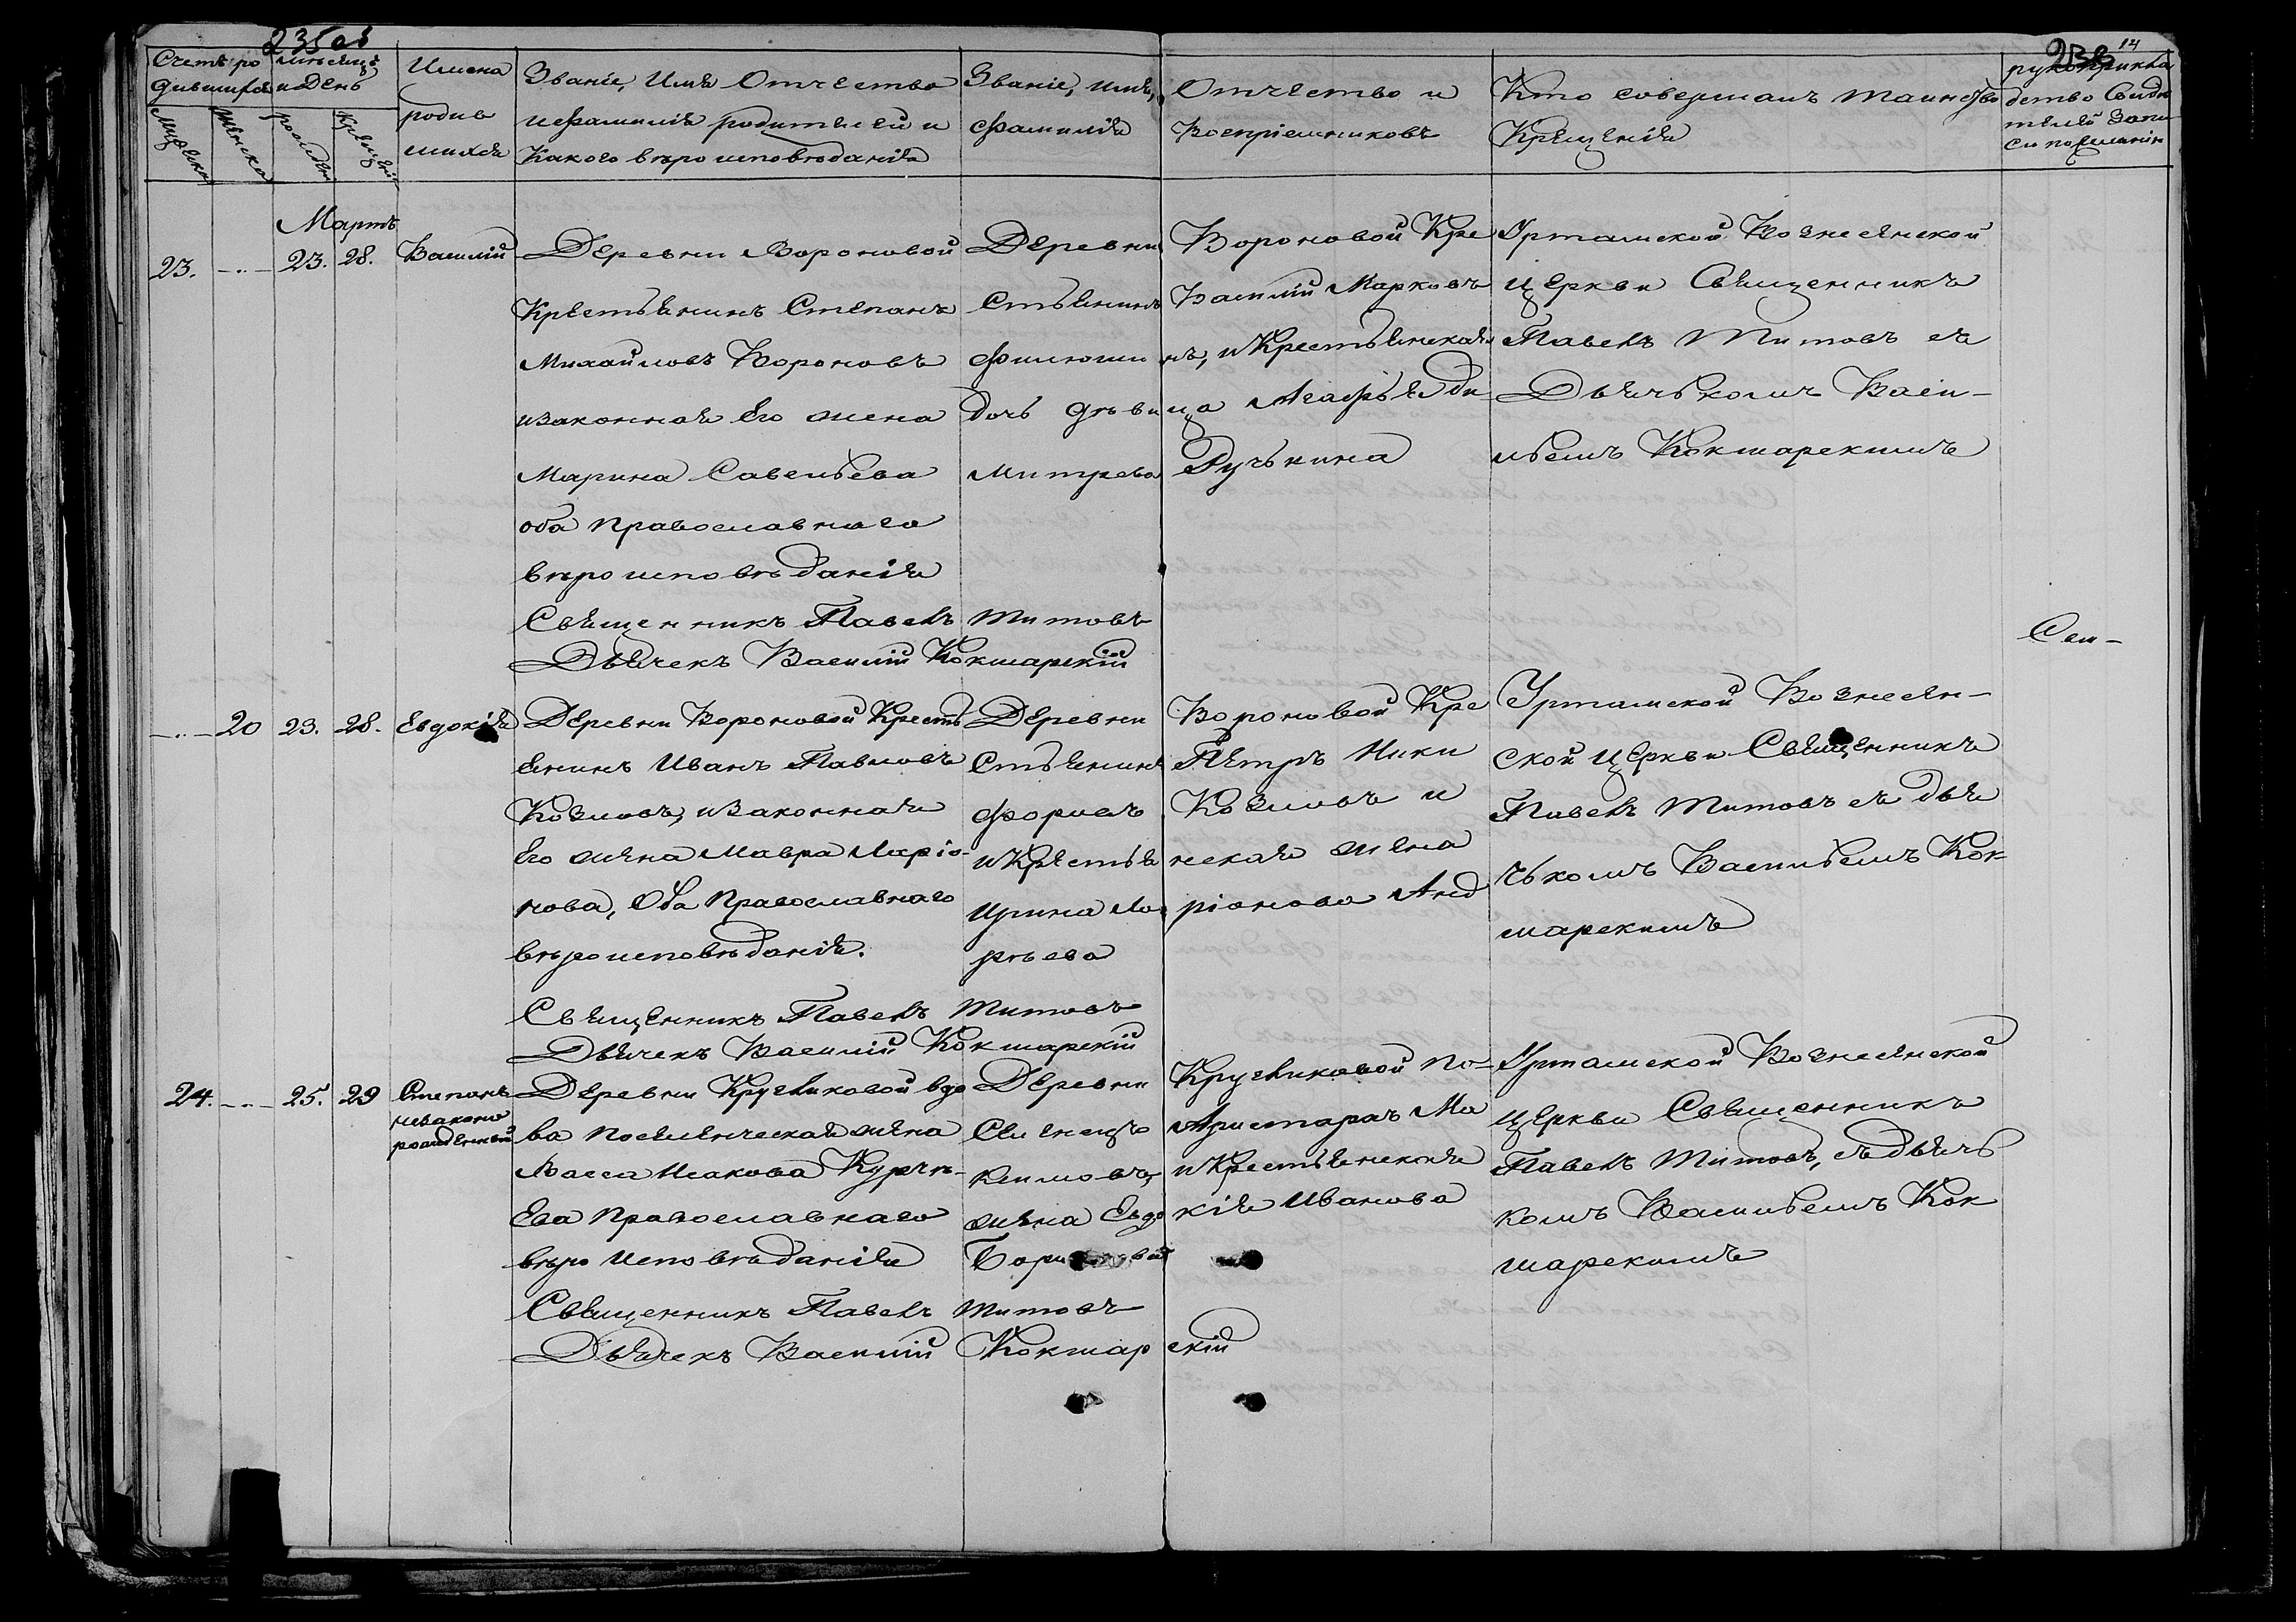 235 об
236
14
Счетъ ро
дившихся
мѣсяцъ
и День
Имена
родив
шихся
Званіе, Имя Отчество
и Фамилія родителей и
какого вѣроисповѣданія
Званіе, имя, Отчество и
Фамилія Воспріемниковъ
Кто совершалъ таинство
Крещенія
рукоприкла
детво Свидѣ
телей Запи
си по желанію
Мужска
Женска
рожден
Крещен
Мартъ
23. 23. 28. Василій
Деревни Вороновой
Крестьянинъ Степанъ
Михайловъ Вороновъ
и законная Его жена
Марина Савельева
оба православнаго
вѣроисповѣданія
Деревни Вороновой Кре
стьянинъ Василій Марковъ
Филюшинъ, и Крестьянская
дочь дѣвица Агафья Ди
митрева Ручькина
Уртамской Вознесенской
Церкви Священникъ
Павелъ Титовъ съ
Дьячькомъ Васи-
льемъ Кокшарскимъ
Священникъ Павелъ Титовъ
Дьячекъ Василій Кокшарскій
Сем-
20 23. 28. Евдокія
Деревни Вороновой Кресть
янинъ Иванъ Павловъ
Козловъ, и законная
Его жена Мавра Ларіо-
нова, Оба Православнаго
вѣроисповѣданія.
Деревни Вороновой Кре
стьянинъ Петръ Ники
форовъ Козловъ и
и Крестьянская жена
Ирина Ларіонова Анд
рѣева
Уртамской Вознесен-
ской Церкви Священникъ
Павелъ Титовъ съ дья
чькомъ Васильемъ Кок-
шарскимъ
Священникъ Павелъ Титовъ
Дьячекъ Василій Кокшарскій
24. 25. 29 Степанъ
незаконо
рожденный
Деревни Кругликовой вдо
ва поселенческая жена
Васса Исакова Курче-
Ева Православнаго
вѣроисповѣданія
Деревни Кругликовой По-
селенецъ Аристархъ Ма
ксимовъ, и Крестьянская
жена Евдокія Иванова
Уртамской Вознесенской
Церкви Священникъ
Павелъ Титовъ, съ дьячь
комъ Васильемъ Кок
шарскимъ
Священникъ Павелъ Титовъ
Дьячекъ Василій Кокшарскій